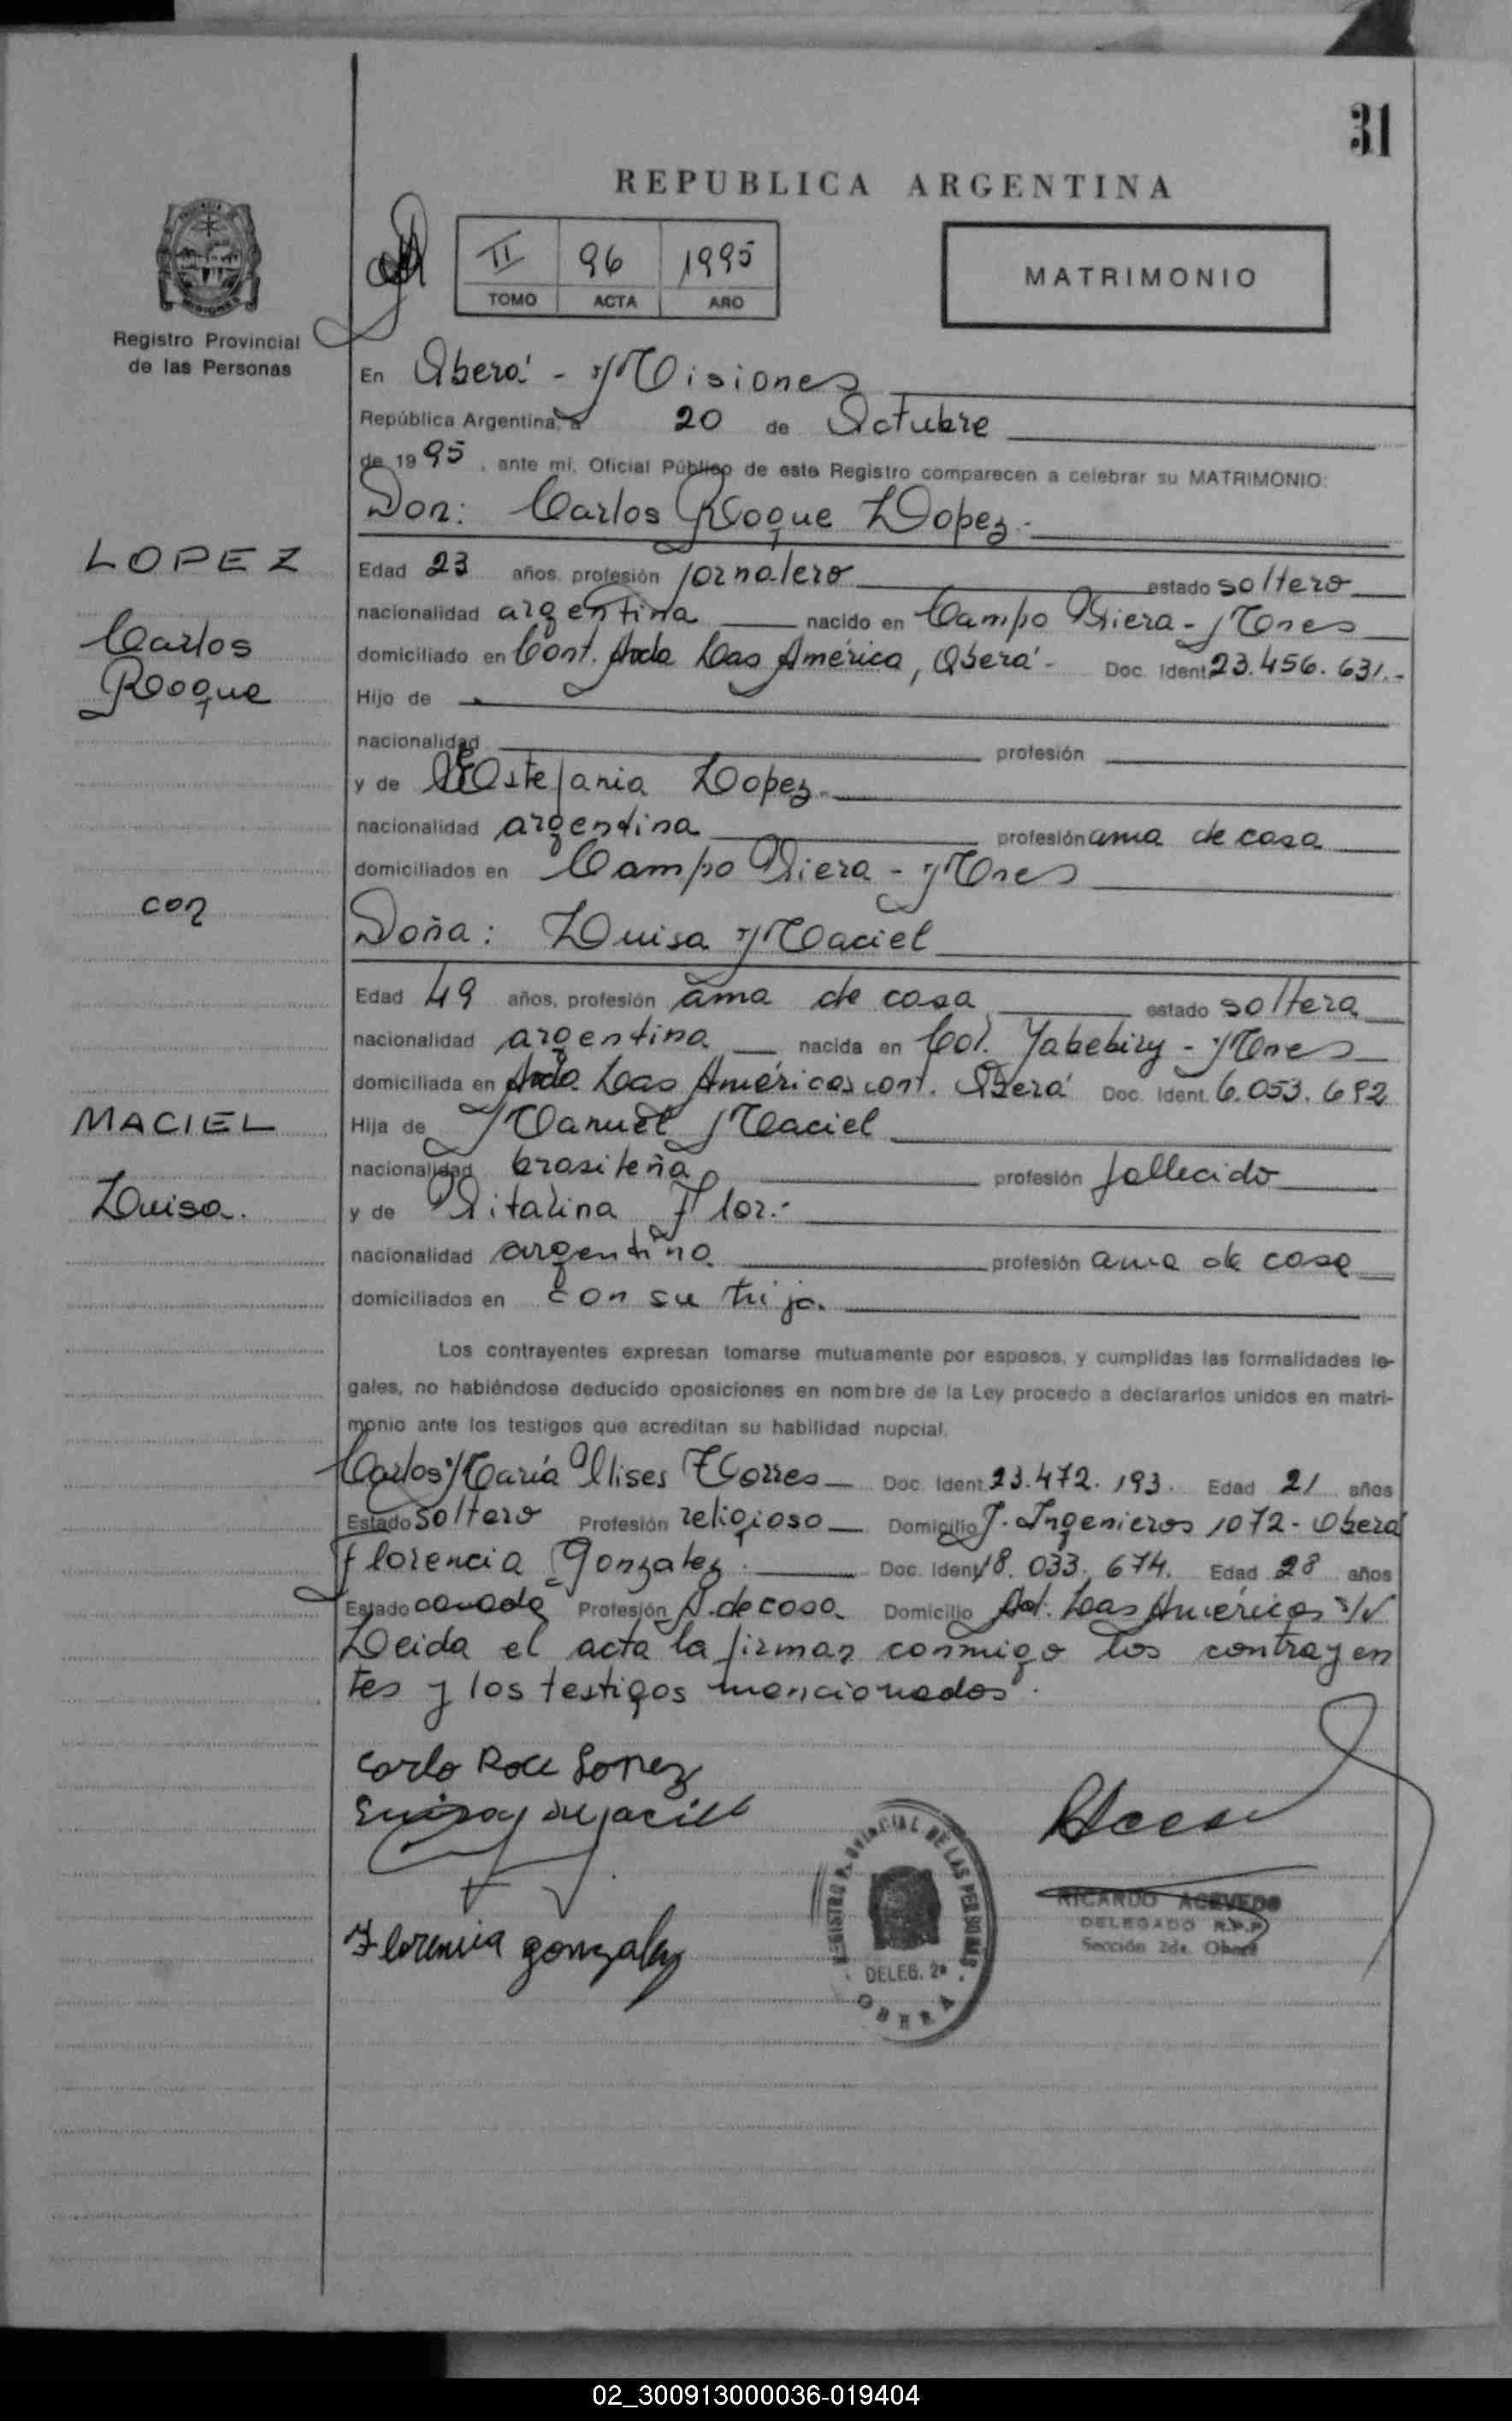 31
REPUBLICA ARGENTINA
II 96 1995
TOMO ACTA AÑO
MATRIMONIO
Registro Provincial
de las Personas
En Oberá - Misiones
República Argentina, a 20 de Octubre
de 1995, ante mi, Oficial Público de este Registro comparecen a celebrar su MATRIMONIO:
Don: Carlos Roque Lopez.-
LOPEZ
Carlos
Roque
Edad 23 años, profesión jornalero estado soltero
nacionalidad argentina nacido en Campo Viera - Mnes
domiciliado en Cont. Avda Las América, Oberá - Doc. Ident. 23.456.631.-
Hijo de
nacionalidad profesión
y de Estefania Lopez.-
nacionalidad argentina profesión ama de casa
domiciliados en Campo Viera - Mnes
con
Doña: Luisa Maciel
Edad 49 años, profesión ama de casa estado soltera
nacionalidad argentina nacida en Col. Yabebiry - Mnes
domiciliada en Avda. Las Américas cont. Oberá Doc. Ident. 6.053.692
MACIEL
Luisa.
Hija de Manuel Maciel
nacionalidad brasileña profesión fallecido
y de Vitalina Flor.-
nacionalidad argentina profesión ama de casa
domiciliados en con su hija.
Los contrayentes expresan tomarse mutuamente por esposos, y cumplidas las formalidades le-
gales, no habiéndose deducido oposiciones en nombre de la Ley procedo a declararlos unidos en matri-
monio ante los testigos que acreditan su habilidad nupcial.
Carlos María Ulises Torres Doc. Ident. 23.472.193. Edad 21 años
Estado soltero Profesión religioso Domicilio J. Ingenieros 1072 - Oberá
Florencia Gonzalez. Doc. Ident. 18.033.674. Edad 28 años
Estado casada Profesión A. de casa Domicilio Av. Las Américas S/N
Leida el acta la firman conmigo los contrayen
tes y los testigos mencionados.
Carlo Roce Lopez
Florencia gonzalez
REGISTRO PROVINCIAL DE LAS PERSONAS
DELEG. 2ª
OBERA
RICARDO ACEVEDO
DELEGADO R.P.P
Sección 2da. Oberá
02_300913000036-019404